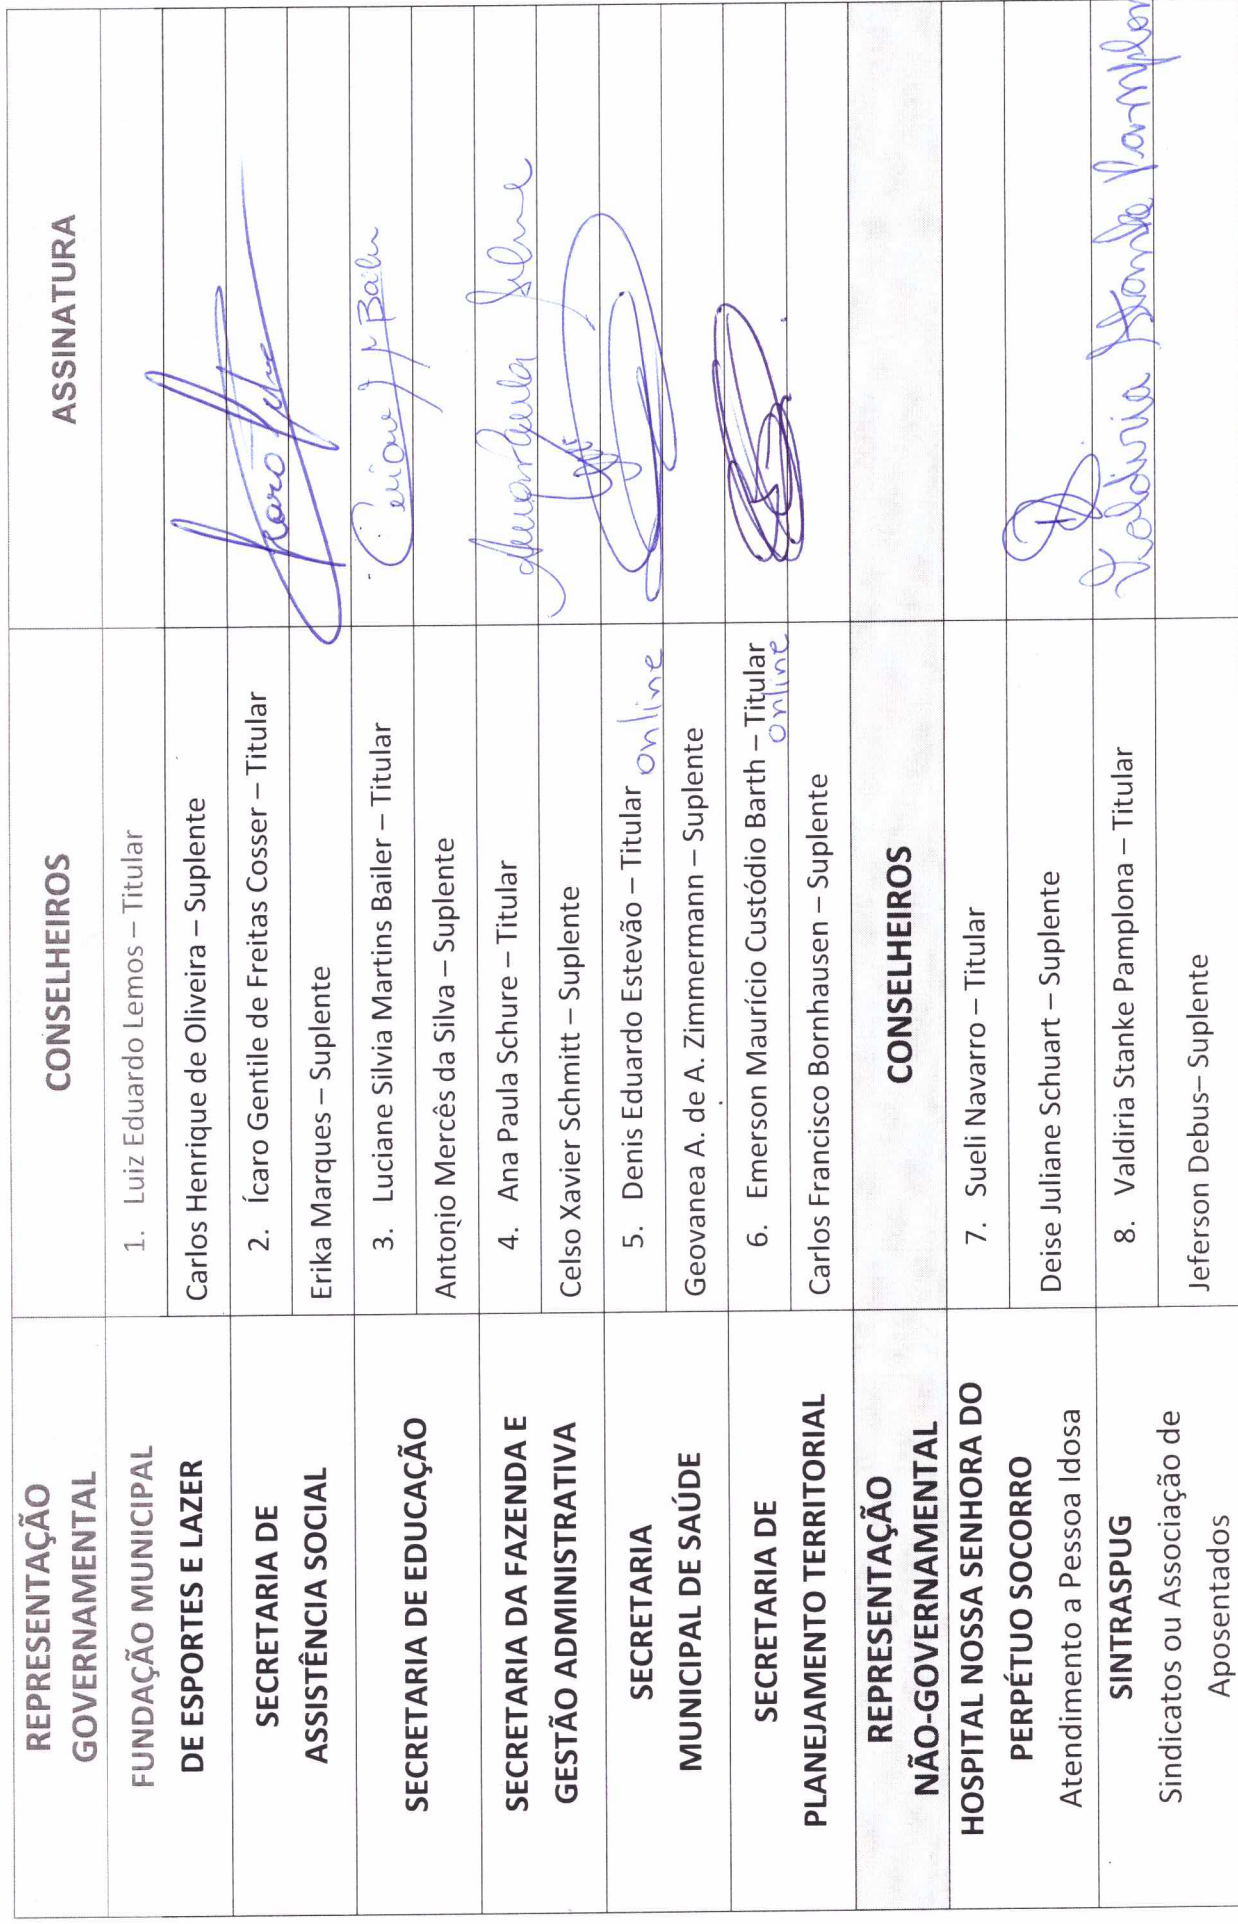 REPRESENTAÇÃO
GOVERNAMENTAL
CONSELHEIROS
ASSINATURA
FUNDAÇÃO MUNICIPAL
DE ESPORTES E LAZER
1. Luiz Eduardo Lemos – Titular
Carlos Henrique de Oliveira – Suplente
SECRETARIA DE
ASSISTÊNCIA SOCIAL
2. Ícaro Gentile de Freitas Cosser – Titular
Erika Marques – Suplente
SECRETARIA DE EDUCAÇÃO
3. Luciane Silvia Martins Bailer – Titular
Antonio Mercês da Silva – Suplente
SECRETARIA DA FAZENDA E
GESTÃO ADMINISTRATIVA
4. Ana Paula Schure – Titular
Celso Xavier Schmitt – Suplente
SECRETARIA
MUNICIPAL DE SAÚDE
5. Denis Eduardo Estevão – Titular online
Geovanea A. de A. Zimmermann – Suplente
SECRETARIA DE
PLANEJAMENTO TERRITORIAL
6. Emerson Maurício Custódio Barth – Titular
online
Carlos Francisco Bornhausen – Suplente
REPRESENTAÇÃO
NÃO-GOVERNAMENTAL
CONSELHEIROS
HOSPITAL NOSSA SENHORA DO
PERPÉTUO SOCORRO
Atendimento a Pessoa Idosa
7. Sueli Navarro – Titular
Deise Juliane Schuart – Suplente
SINTRASPUG
Sindicatos ou Associação de
Aposentados
8. Valdiria Stanke Pamplona – Titular
Valdiria Stanke Pamplon
Jeferson Debus– Suplente